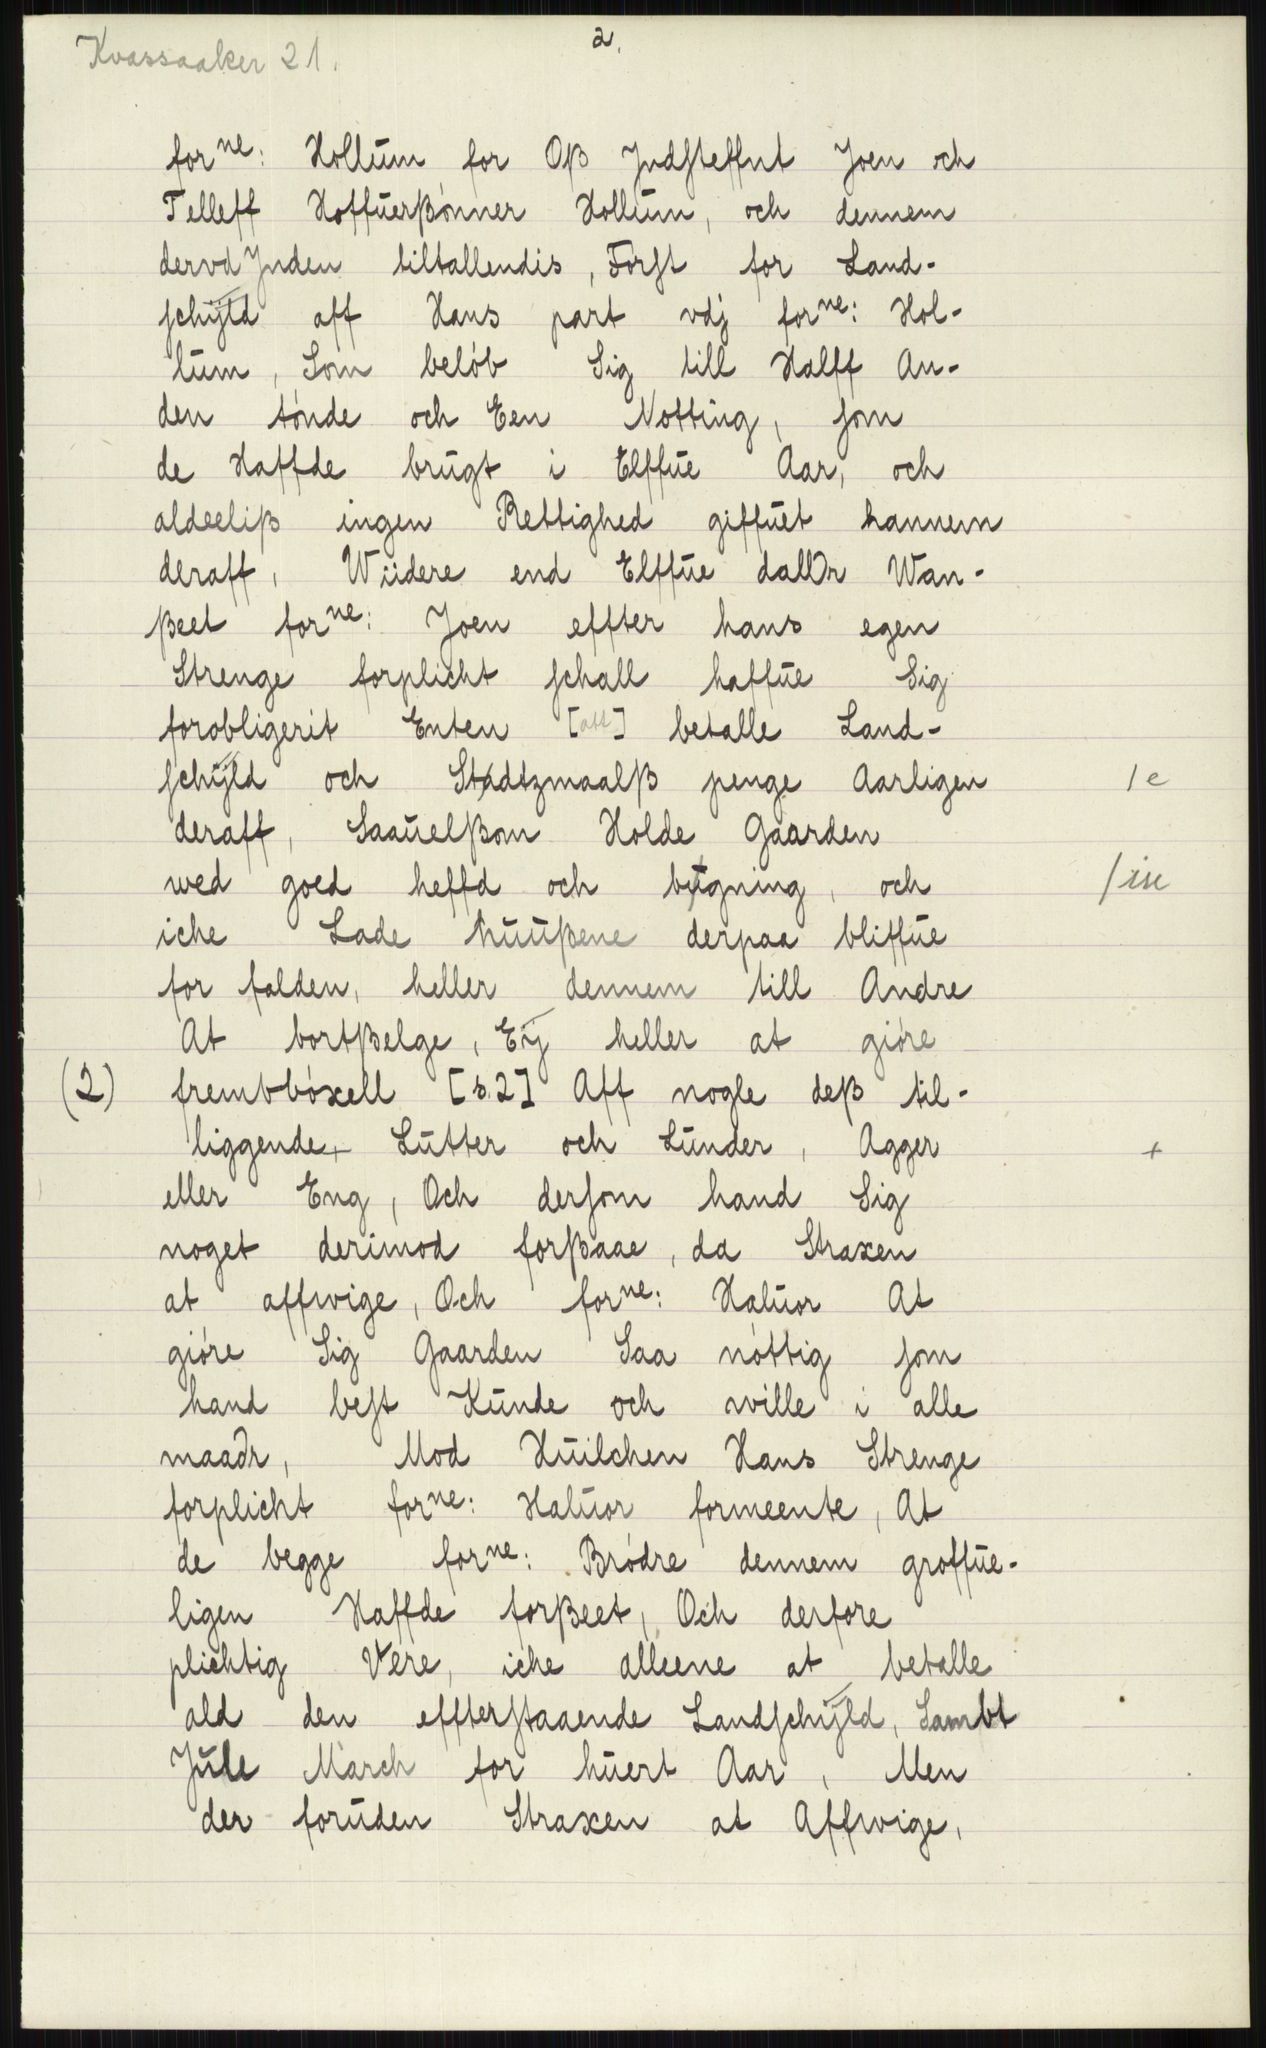 Kvassaaker 21.
2.
forne: Hollum for Oß Jndsteffnt Joen och
Telleff Hoffuerßønner Hollum, och dennem
dervdJnden tiltallendis, Først for Land-
schÿld aff Hans part vdj forne: Hol-
lum, Som beløb Sig till Halff An-
den tønde och Een Notting, som
de Haffde brugt i Elffue Aar, och
aldeeliß ingen Rettighed giffuet hannem
deraff, Wiidere end Elffue dallr Wan-
ßeet forne: Joen effter hans egen
Strenge forplicht schall haffue Sig
forobligerit Enten [att] betalle Land-
schÿld och Stadtzmaalß penge Aarligen /e
deraff, Saauelßom Holde Gaarden
wed goed heffd och bygning, och
iche Lade huußene derpaa bliffue
for falden, heller dennem till Andre
At bortßelge, Eÿ heller at giøre
(2) frembbøxell [s.2] Aff nogle deß til-
liggende, Lutter och Lunder, Agger +
eller Eng, Och dersom hand Sig
noget derimod forßaae, da Straxen
at affwige, Och forne: Haluor At
giøre Sig Gaarden Saa nøttig som
hand best Kunde och wille i alle
maadr, Mod Huilchen Hans Strenge
forplicht forne: Haluor formeente, At
de begge forne: Brødre dennem groffue-
ligen Haffde forßeet, Och derfore
plichtig Vere, iche alleene at betalle
ald den effterstaaende Landschÿld, Sambt
Jule March for huert Aar, Men
der foruden Straxen at Affwige,